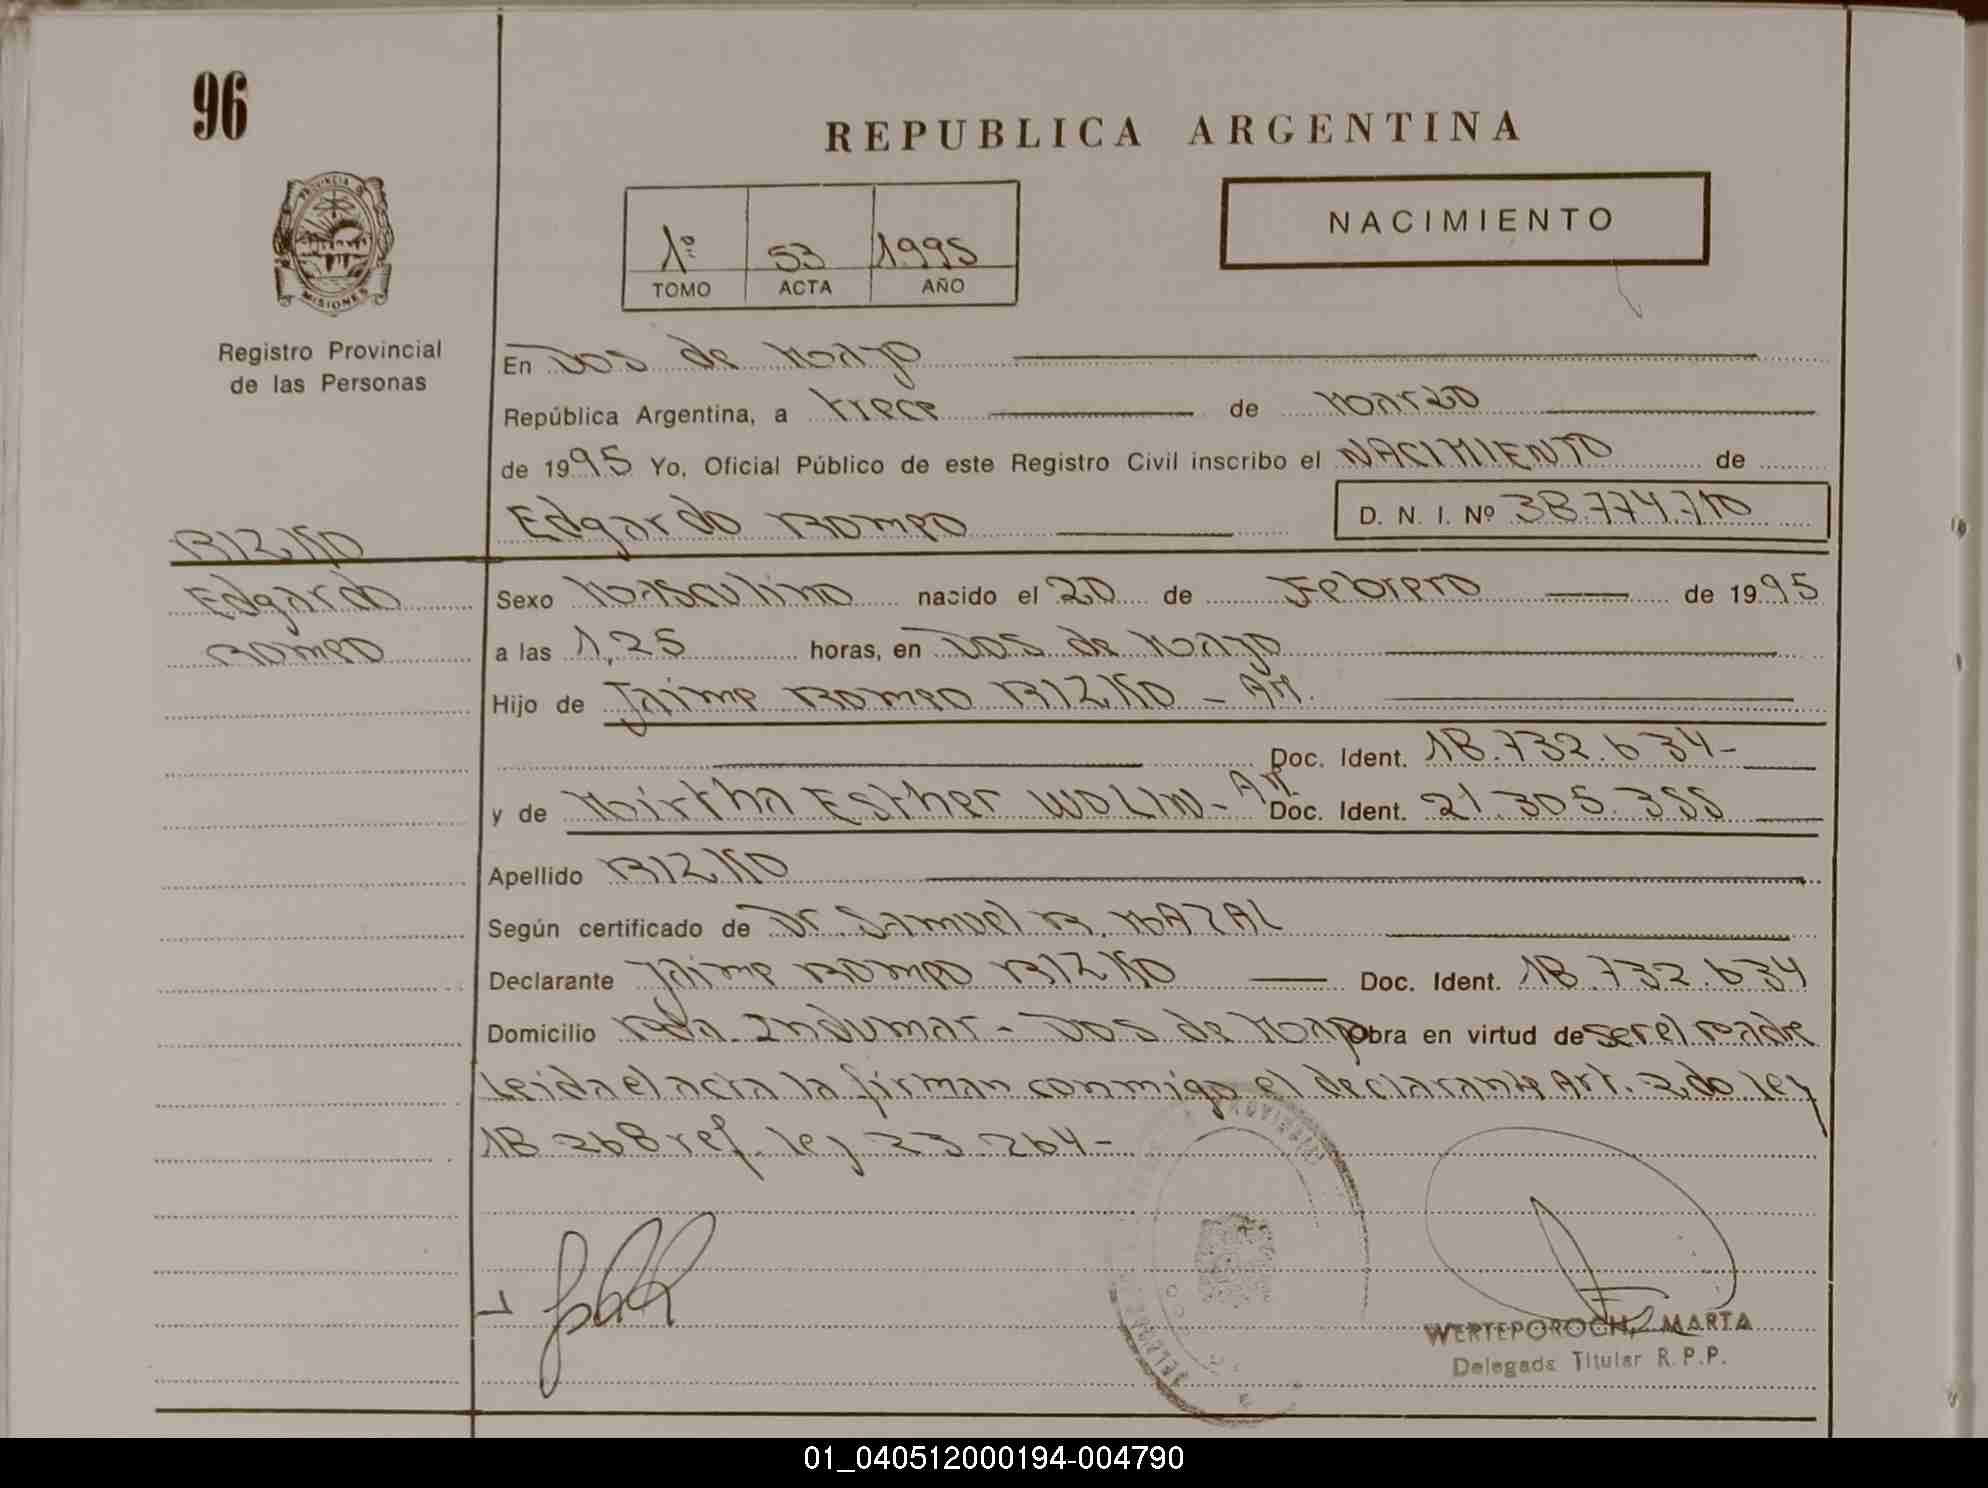 96
REPUBLICA ARGENTINA
PROVINCIA DE
MISIONES
1º 53 1995
TOMO ACTA AÑO
NACIMIENTO
Registro Provincial
de las Personas
En Dos de Mayo
República Argentina, a trece de Marzo
de 1995 Yo, Oficial Público de este Registro Civil inscribo el NACIMIENTO de
Edgardo Romeo D. N. I. Nº 38.774.710
Edgardo
Romeo
Sexo Masculino nacido el 20 de Febrero de 1995
a las 1,25 horas, en Dos de Mayo
Hijo de Jaime Romeo - AR.
Doc. Ident. 18.732.634-
y de Mirtha Esther WOLIN - AR. Doc. Ident. 21.305.355
Apellido
Según certificado de Dr. Samuel R. MAZAL
Declarante Jaime Romeo Doc. Ident. 18.732.634
Domicilio Indumar - Dos de Mayo Obra en virtud de ser el padre
Leida el acta la firman conmigo el declarante Art. 2do ley
18.268 ref. ley 23.264-
WERTEPOROCH, MARTA
Delegada Titular R.P.P.
01_040512000194-004790